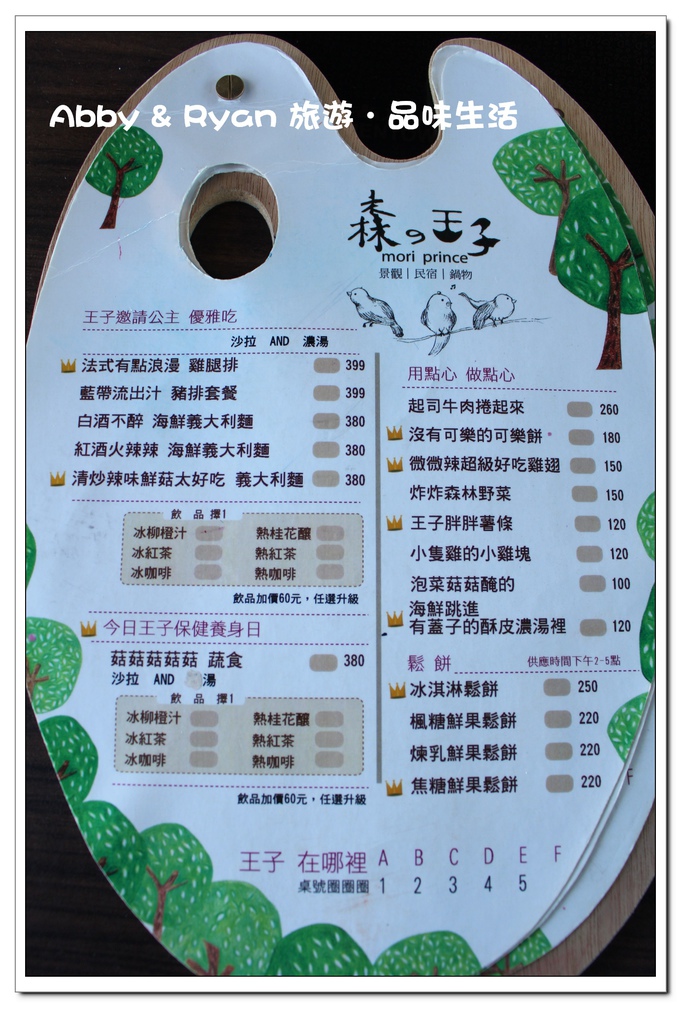 Abby & Ryan 旅遊・品味生活
森の王子
mori prince
景觀｜民宿｜鍋物
王子邀請公主 優雅吃
沙拉 AND 濃湯
法式有點浪漫 雞腿排 399
藍帶流出汁 豬排套餐 399
白酒不醉 海鮮義大利麵 380
紅酒火辣辣 海鮮義大利麵 380
清炒辣味鮮菇太好吃 義大利麵 380
飲品 擇1
冰柳橙汁 熱桂花釀
冰紅茶 熱紅茶
冰咖啡 熱咖啡
飲品加價60元，任選升級
今日王子保健養身日
菇菇菇菇菇 蔬食 380
沙拉 AND 湯
飲品 擇1
冰柳橙汁 熱桂花釀
冰紅茶 熱紅茶
冰咖啡 熱咖啡
飲品加價60元，任選升級
用點心 做點心
起司牛肉捲起來 260
沒有可樂的可樂餅 180
微微辣超級好吃雞翅 150
炸炸森林野菜 150
王子胖胖薯條 120
小隻雞的小雞塊 120
泡菜菇菇醃的 100
海鮮跳進
有蓋子的酥皮濃湯裡 120
鬆餅 供應時間下午2-5點
冰淇淋鬆餅 250
楓糖鮮果鬆餅 220
煉乳鮮果鬆餅 220
焦糖鮮果鬆餅 220
F
王子 在哪裡 A B C D E F
桌號圈圈圈 1 2 3 4 5